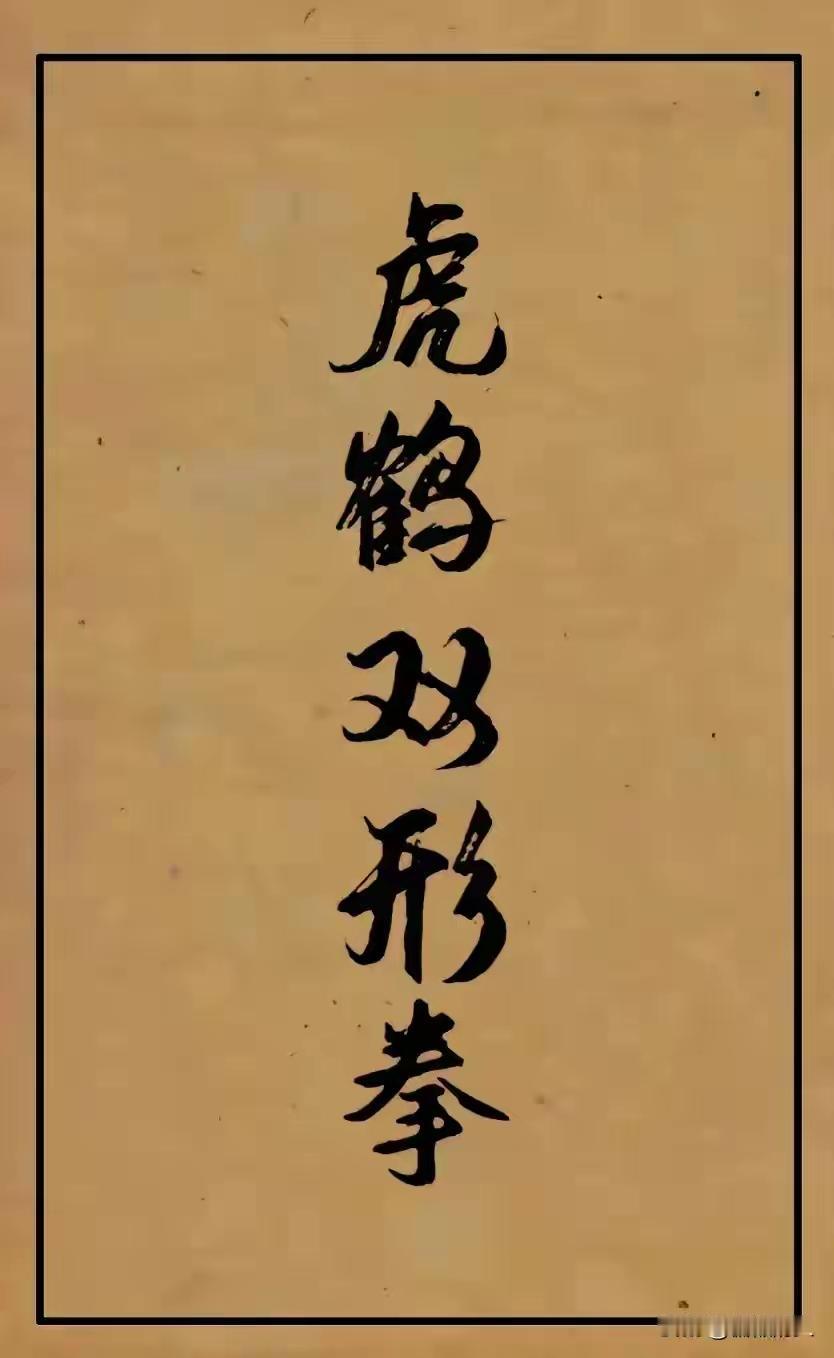 虎鹤双形拳